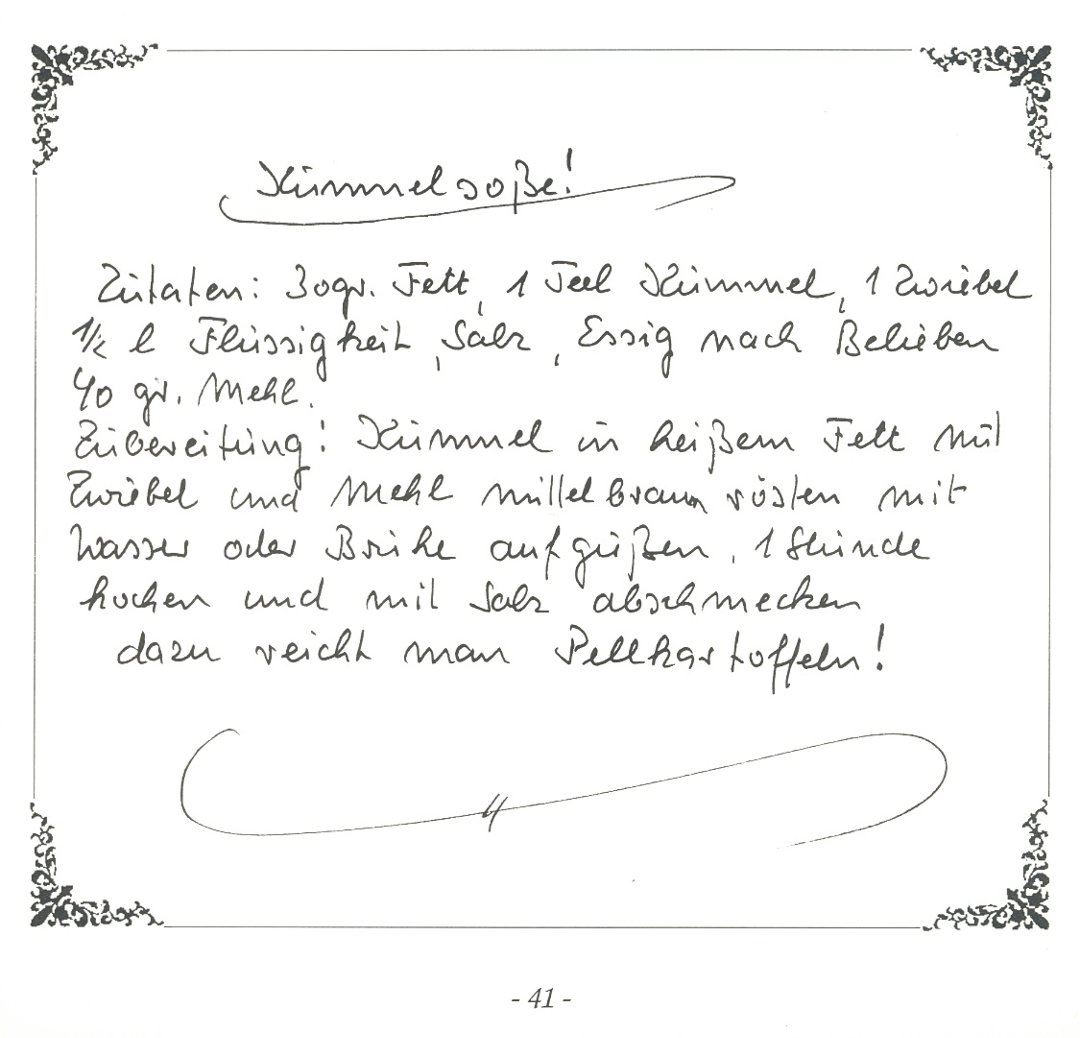 Kümmelsoße!
Zutaten: 30gr. Fett, 1 Teel Kümmel, 1 Zwiebel
1/2 l Flüssigkeit, Salz, Essig nach Belieben
40 gr. Mehl.
Zubereitung: Kümmel in heißem Fett mit
Zwiebel und Mehl mittelbraun rösten mit
Wasser oder Brühe aufgießen, 1 Stunde
kochen und mit Salz abschmecken
dazu reicht man Pellkartoffeln!
- 41 -